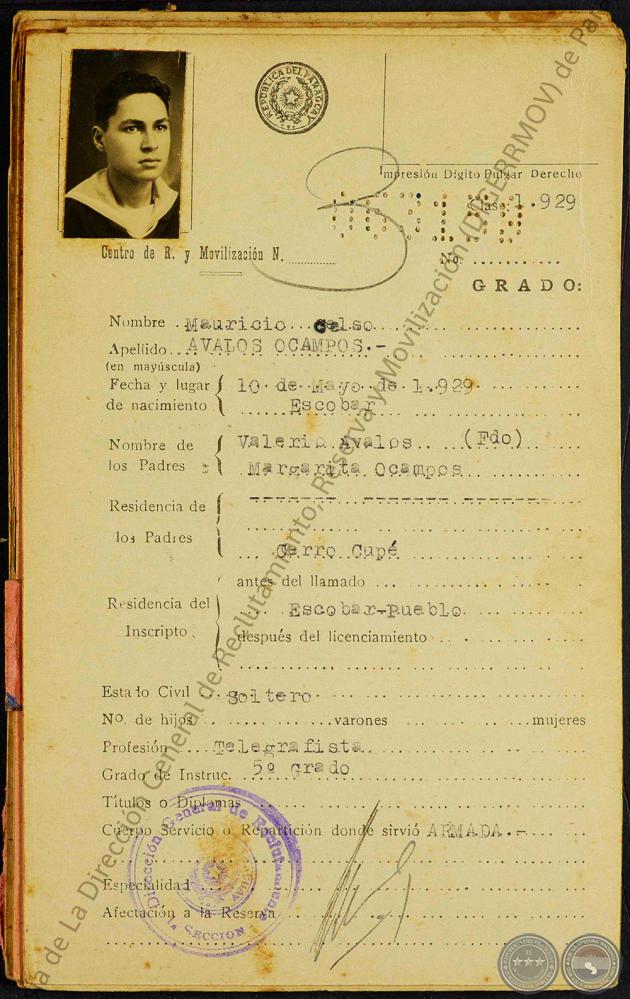 REPUBLICA DEL PARAGUAY
Impresión Dígito Pulgar Derecho
Clase 1.929
Centro de R. y Movilización N. ............
No. ............
GRADO:
Nombre Mauricio Celso
Apellido AVALOS OCAMPOS.-
(en mayúscula)
Fecha y lugar 10 de Mayo de 1.929
de nacimiento Escobar
Nombre de Valerio Avalos (Fdo)
los Padres Margarita Ocampos
Residencia de ------- ------- -------
los Padres
Cerro Cupé
antes del llamado
Residencia del Escobar-pueblo
Inscripto después del licenciamiento
Estado Civil Soltero
No. de hijos varones mujeres
Profesión Telegrafista
Grado de Instruc. 5º grado
Títulos o Diplomas
Cuerpo Servicio o Repartición donde sirvió ARMADA.-
Especialidad
Afectación a la Reserva
Dirección General de Reclutamiento
1a SECCION
de La Dirección General de Reclutamiento, Reserva y Movilización (DIGERRMOV) de